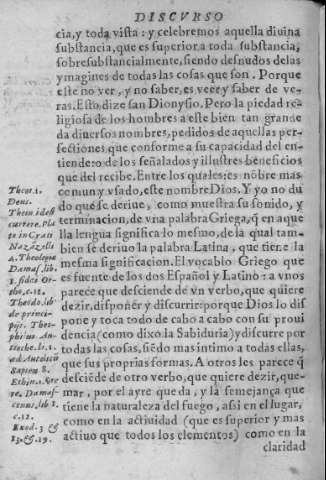 DISCVRSO
cia, y toda vista: y celebremos aquella diuina
substancia, que es superior a toda substancia,
sobresubstancialmente, siendo desnudos delas
ymagines de todas las cosas que son. Porque
este no ver, y no saber, es veer y saber de ve-
ras. Esto dize san Dionysio. Pero la piedad re-
ligiosa de los hombres a este bien tan grande
da diuersos nombres, pedidos de aquellas per-
fectiones, que conforme a su capacidad del en-
tiende: o de los señalados y illustres beneficios
que del recibe. Entre los quales, es nõbre mas
comun y vsado, este nombre Dios. Y yo no du
do que se deriue, como muestra su sonido, y
terminacion, de vna palabra Griega, q̃ en aque
lla lengua significa lo mesmo, de la qual tam
bien se deriuo la palabra Latina, que tiene la
mesma significacion. El vocablo Griego que
es fuente de los dos Español y Latino: a vnos
parece que desciende de vn verbo, que quiere
dezir, disponer y discurrir: porque Dios lo dis
pone y toca todo de cabo a cabo con su proui
dẽcia (como dixo la Sabiduria) y discurre por
todas las cosas, siẽdo mas intimo a todas ellas,
que sus proprias formas. A otros les parece q̃
desciẽde de otro verbo, que quiere dezir, que-
mar, por el ayre que da, y la semejança que
tiene la naturaleza del fuego, assi en el lugar,
como en la actiuidad (que es superior y mas
actiuo que todos los elementos) como en la
claridad
Theor. 1.
Deus.
Them idest
currere. Pla
to in Craty
Nazãz. lib
4. Theologia
Damas. lib.
1. fidei Or-
tho, c. 12.
Theodo. lib
de princi-
pijs. Theo-
philus An-
tioche. li. 1.
ad Autolicũ
Sapien 8.
Ethin. i. Are
re. Damas-
cenus, lib 1.
c. 12.
Exod. 3 &
13. & 19.